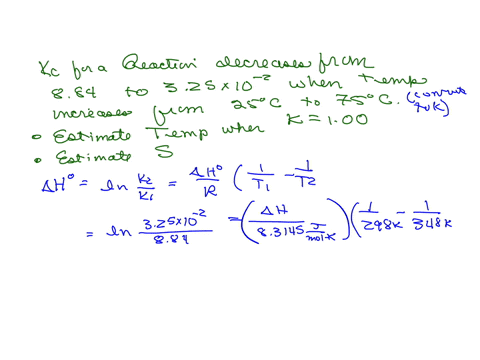 Kc for a Reaction decreases from
8.84 to 3.25×10⁻² when Temp
increases from 25°C to 75°C. (convert to K)
• Estimate Temp when K=1.00
• Estimate S
ΔH° = ln K₂/K₁ = ΔH°/R (1/T₁ - 1/T2
= ln 3.25×10⁻²/8.84 = (ΔH/8.3145 J/mol·K) (1/298K - 1/348K